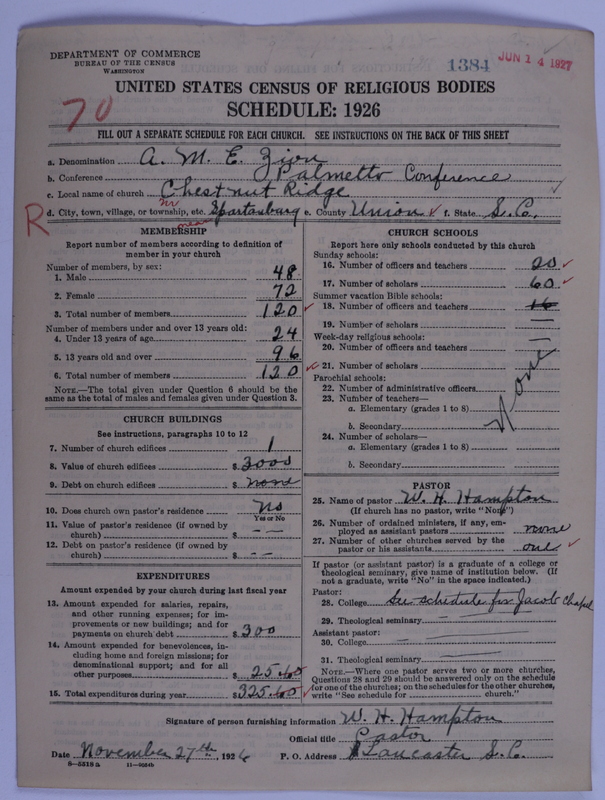 DEPARTMENT OF COMMERCE
BUREAU OF THE CENSUS
WASHINGTON
1384
JUN 14 1927
UNITED STATES CENSUS OF RELIGIOUS BODIES
SCHEDULE: 1926
70
FILL OUT A SEPARATE SCHEDULE FOR EACH CHURCH. SEE INSTRUCTIONS ON THE BACK OF THIS SHEET
a. Denomination A. M. E. Zion
b. Conference Palmetto Conference
c. Local name of church Chestnut Ridge
R d. City, town, village, or township, etc. nr Spartanburg e. County Union f. State S.C.
near
MEMBERSHIP
Report number of members according to definition of
member in your church
Number of members, by sex:
1. Male 48
2. Female 72
3. Total number of members 120
Number of members under and over 13 years old:
4. Under 13 years of age 24
5. 13 years old and over 96
6. Total number of members 120
NOTE.—The total given under Question 6 should be the
same as the total of males and females given under Question 3.
CHURCH BUILDINGS
See instructions, paragraphs 10 to 12
7. Number of church edifices 1
8. Value of church edifices $ 3000
9. Debt on church edifices $ none
10. Does church own pastor's residence no
Yes or No
11. Value of pastor's residence (if owned by
church) $ — —
12. Debt on pastor's residence (if owned by
church) $ — —
EXPENDITURES
Amount expended by your church during last fiscal year
13. Amount expended for salaries, repairs,
and other running expenses; for im-
provements or new buildings; and for
payments on church debt $ 300
14. Amount expended for benevolences, in-
cluding home and foreign missions; for
denominational support; and for all
other purposes $ 25.60
15. Total expenditures during year $ 325.60
CHURCH SCHOOLS
Report here only schools conducted by this church
Sunday schools:
16. Number of officers and teachers 20
17. Number of scholars 60
Summer vacation Bible schools:
18. Number of officers and teachers 16
19. Number of scholars —
Week-day religious schools:
20. Number of officers and teachers —
21. Number of scholars
Parochial schools:
22. Number of administrative officers
23. Number of teachers—
a. Elementary (grades 1 to 8)
b. Secondary
24. Number of scholars—
a. Elementary (grades 1 to 8)
b. Secondary
None
PASTOR
25. Name of pastor W. H. Hampton
(If church has no pastor, write "None")
26. Number of ordained ministers, if any, em-
ployed as assistant pastors none
27. Number of other churches served by the
pastor or his assistants one
If pastor (or assistant pastor) is a graduate of a college or
theological seminary, give name of institution below. (If
not a graduate, write "No" in the space indicated.)
Pastor:
28. College See schedule for Jacob Chapel
29. Theological seminary
Assistant pastor:
30. College
31. Theological seminary
NOTE.—Where one pastor serves two or more churches,
Questions 28 and 29 should be answered only on the schedule
for one of the churches; on the schedules for the other churches,
write "See schedule for church."
Signature of person furnishing information W. H. Hampton
Official title Pastor
Date November 27th, 1926 P. O. Address Lancaster S.C.
8-5518a